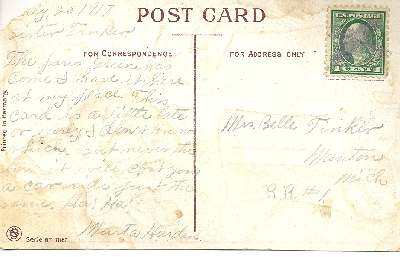 POST CARD
July 20 1917
Sister Tinker
FOR CORRESPONDENCE
FOR ADDRESS ONLY
The has
come I have it here
at my place This
card is a little late
or early I don't know
which but never the
less it will you
a card just the
same. Ha! Ha!
Marta
Mrs. Belle Tinker
Manton
Mich
R.R. #1
Printed in Germany
Serie
1 CENT 1